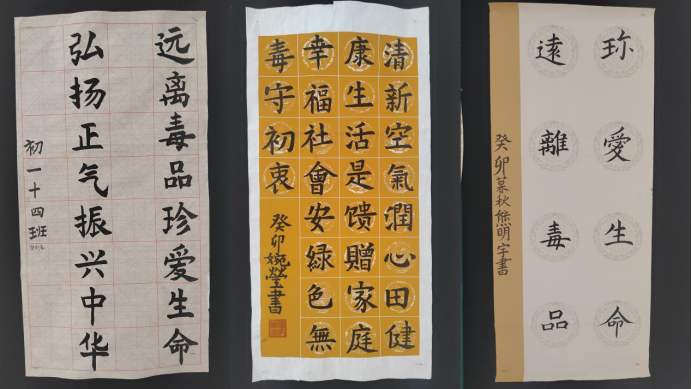 远离毒品珍爱生命
弘扬正气振兴中华
初一十四班
清新空氣潤心田健
康生活是馈贈家庭
幸福社會安緑色無
毒守初衷
癸卯婉瑩書
珎愛生命
遠離毒品
癸卯暮秋熊明宇書